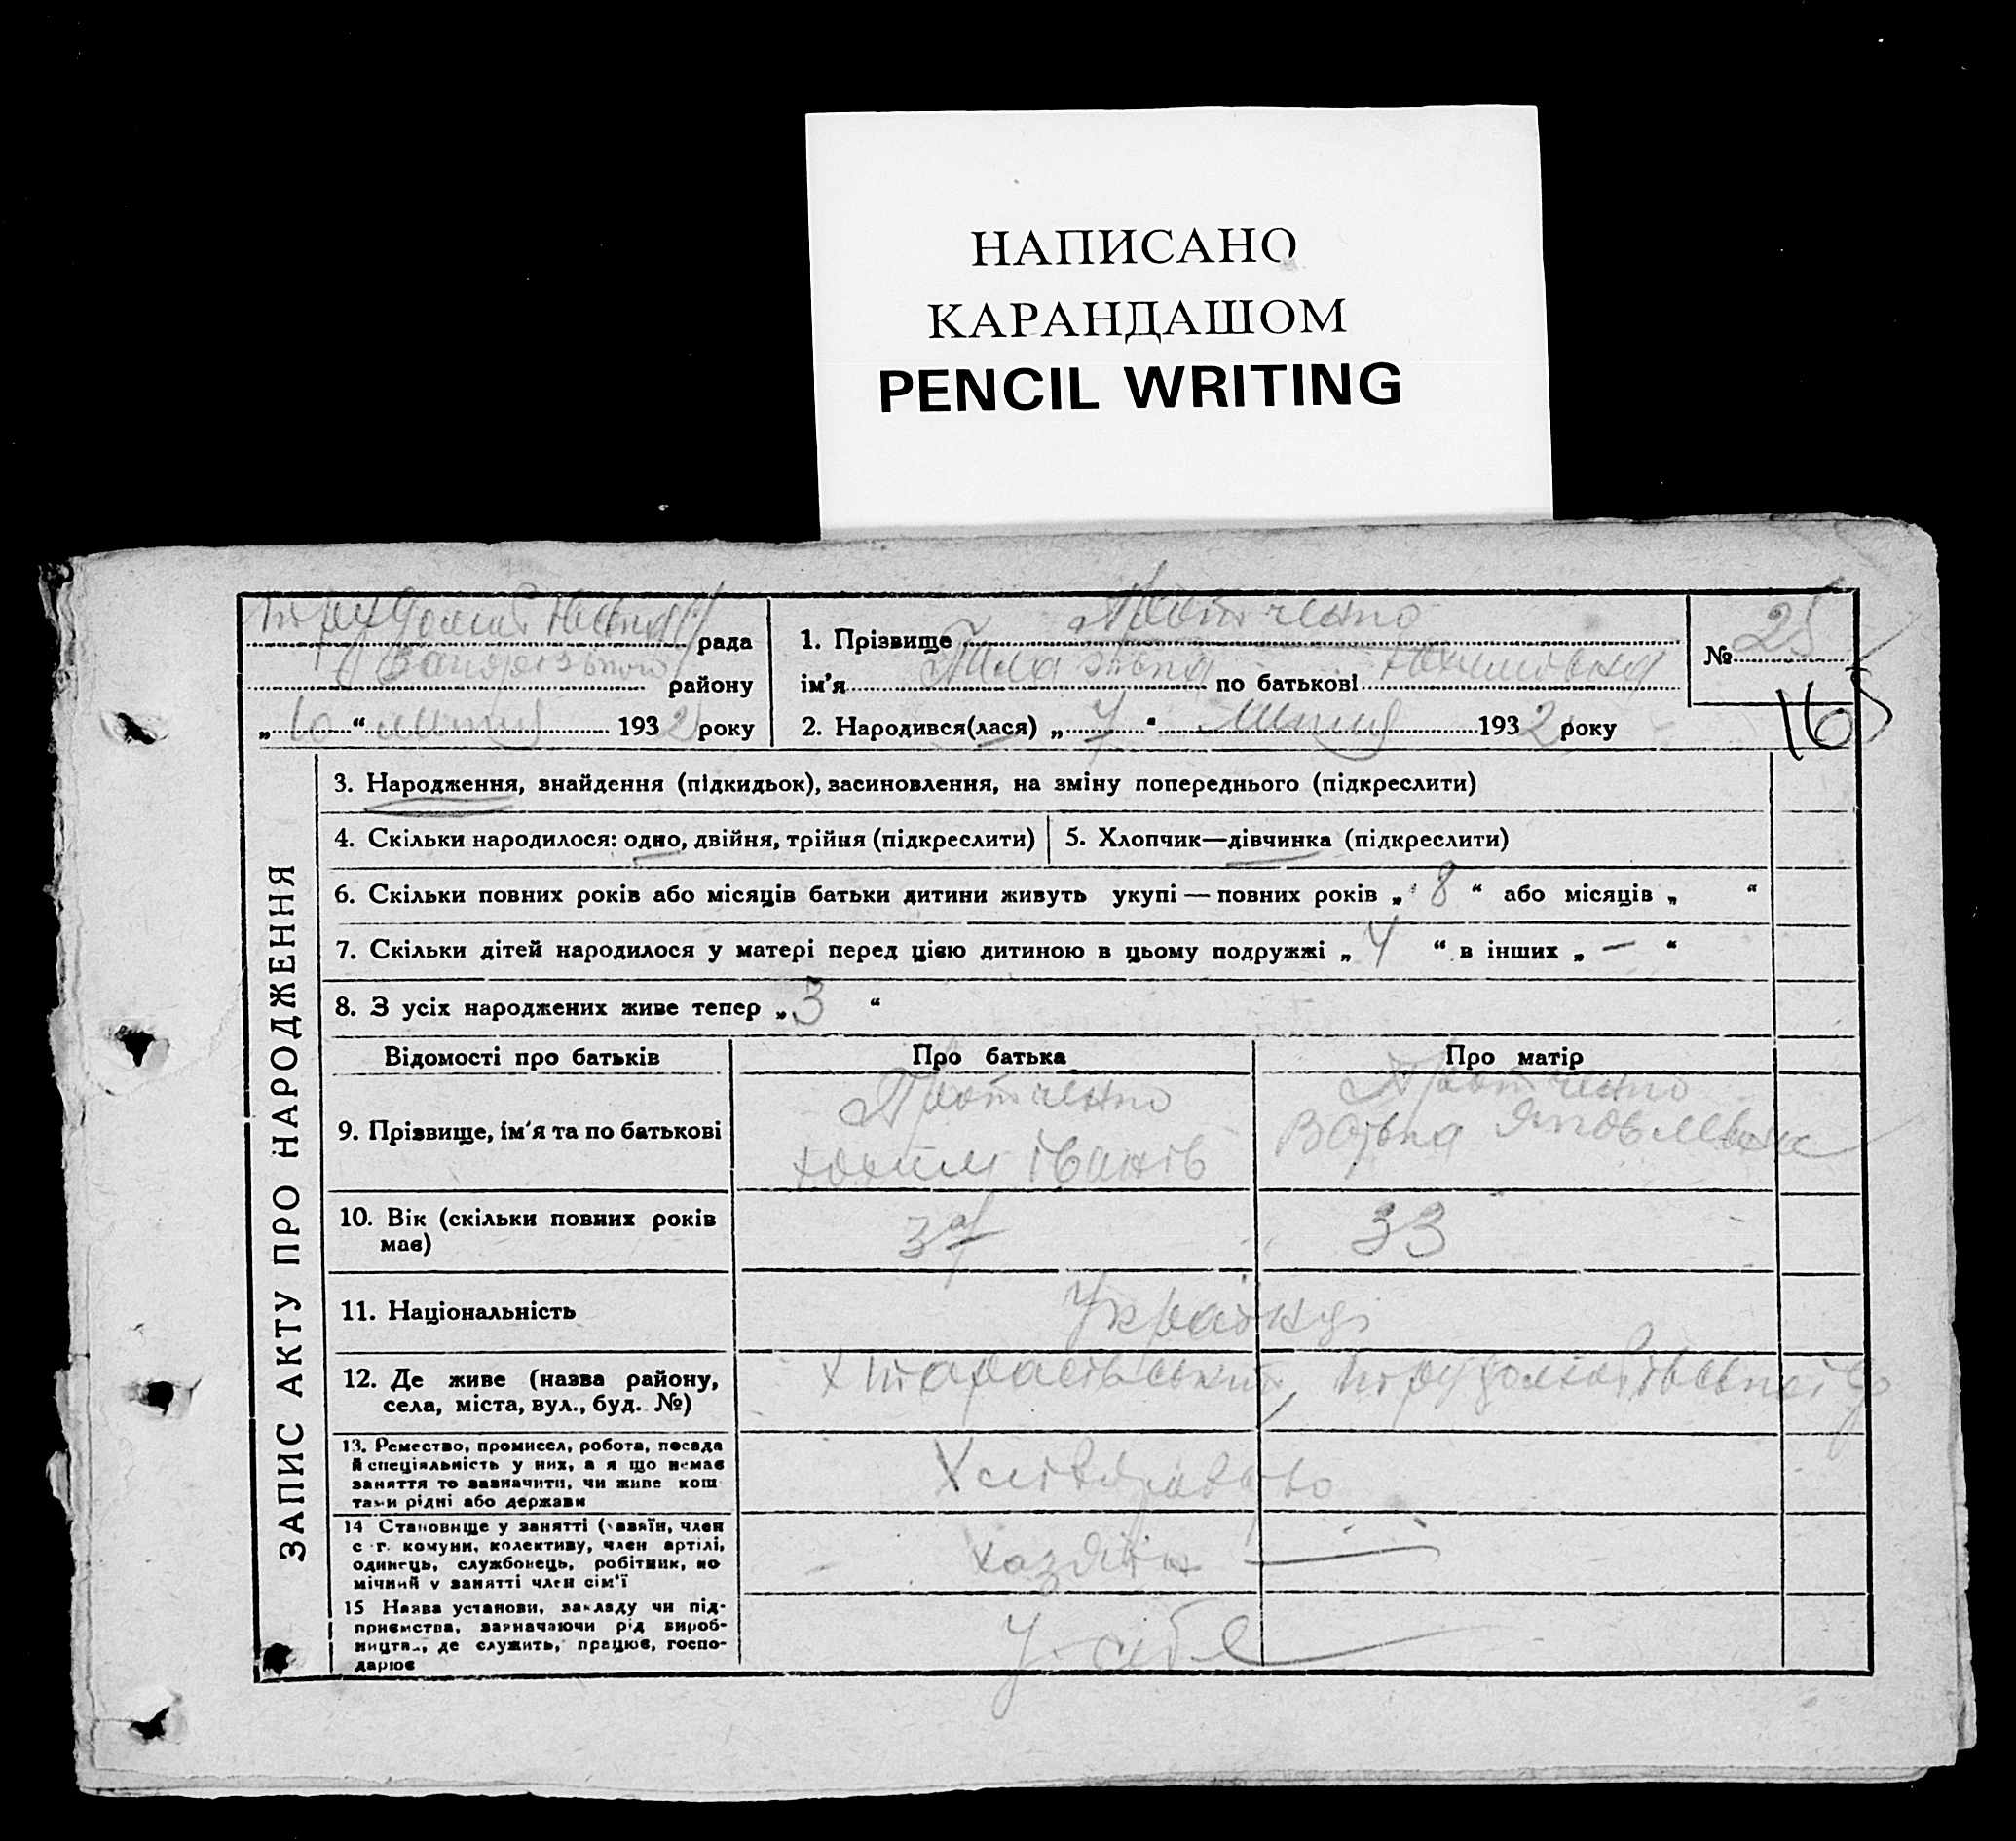 НАПИСАНО
КАРАНДАШОМ
PENCIL WRITING
рада
району
„10“ 1932 року
1. Прізвище
ім'я по батькові
2. Народився(лася) „7“ 1932 року
№ 25
165
ЗАПИС АКТУ ПРО НАРОДЖЕННЯ
3. Народження, знайдення (підкидьок), засиновлення, на зміну попереднього (підкреслити)
4. Скільки народилося: одно, двійня, трійня (підкреслити)
5. Хлопчик—дівчинка (підкреслити)
6. Скільки повних років або місяців батьки дитини живуть укупі — повних років „8“ або місяців „ “
7. Скільки дітей народилося у матері перед цією дитиною в цьому подружжі „4“ в інших „—“
8. З усіх народжених живе тепер „3“
Відомості про батьків Про батька Про матір
9. Прізвище, ім'я та по батькові
Юхим Іванів Яковлевна
10. Вік (скільки повних років
має)
33
11. Національність
Українці
12. Де живе (назва району,
села, міста, вул., буд. №)
13. Ремество, промисел, робота, посада
й спеціяльність у них, а я що немає
заняття то зазначити, чи живе кош
тами рідні або держави
Хліборобство
14 Становище у занятті (хазяїн, член
с г. комуни, колективу, член артілі,
одинець, службовець, робітник, по
мічний у занятті член сім'ї
хазяїн —
15 Назва установи, закладу чи під-
приємства, зазначаючи рід вироб-
ництва, де служить, працює, госпо-
дарює
У себе